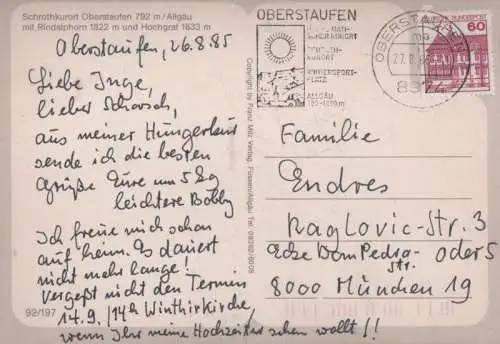 Schrothkurort Oberstaufen 792 m/Allgäu
mit Rindalphorn 1822 m und Hochgrat 1833 m
Oberstaufen, 26.8.85
Liebe Inge,
lieber Schorsch,
aus meiner Hungerkur
sende ich die besten
Grüße Eure um 5 kg
leichtere Bobby
Ich freue mich schon
auf heim. Es dauert
nicht mehr lange!
Vergeßt nicht den Termin
14.9./14h Winthirkirche,
wenn Ihr meine Hochzeiter sehen wollt!!
92/197
Copyright by Franz Milz Verlag, Füssen/Allgäu Tel. 08362/6008
OBERSTAUFEN
SCHROTHKURORT
WINTERSPORT-
PLATZ
ALLGÄU
OBERSTAUFEN
ma
8974
DEUTSCHE BUNDESPOST
60
Familie
Endres
Raglovic-Str. 3
Ecke Dom Pedro- oder 5
Str.
8000 München 19